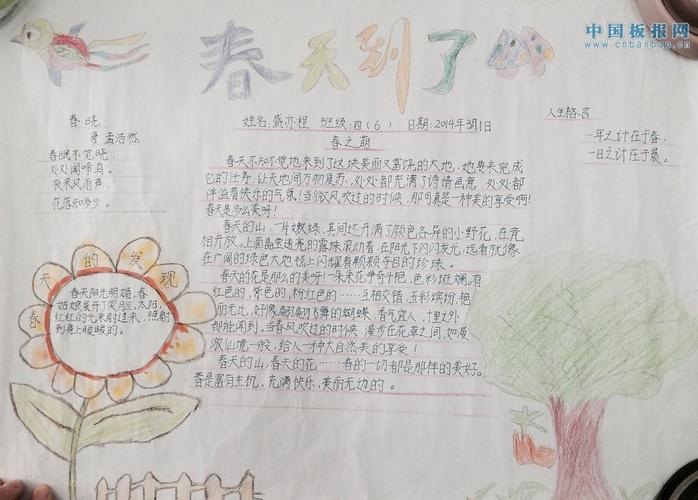 中国板报网
www.cnbanbao.cn
春天到了
姓名：盛亦程 班级：四（6） 日期：2014年3月1日
春晓
唐 孟浩然
春眠不觉晓，
处处闻啼鸟。
夜来风雨声，
花落知多少。
人生格言
一年之计在于春，
一日之计在于晨。
春之萌
春天不知不觉地来到了这块美丽又富饶的大地，她要来完成
它的任务，让天地间万物复苏，处处都充满了诗情画意，处处都
洋溢着快乐的气氛！当微风吹过的时候，那可真是一种美的享受啊！
春天是多么美呀！
春天的山，一片嫩绿，其间还开满了颜色各异的小野花，在竞
相开放。上面晶莹透亮的露珠滚动着，在阳光下闪闪发光，远看犹像
在广阔的绿色大地毯上闪耀着颗颗夺目的珍珠。
春天的花是那么的美呀！一朵朵花争奇斗艳，色彩斑斓。有
红色的，紫色的，粉红色的……互相交错，五彩缤纷，艳
丽无比，好像翩翩飞舞的蝴蝶，香气宜人，十里之外
都能闻到。当春风吹过的时候，漫步在花草之间，如漫
游仙境一般，给人一种大自然美的享受！
春天的山、春天的花……春的一切都是那样的美好。
春是富有生机、充满快乐、美丽无边的。
春天的发现
春天阳光明媚，春
姑娘展开了笑脸，太阳
红红的光束射过来，照射
到身上暖暖的。